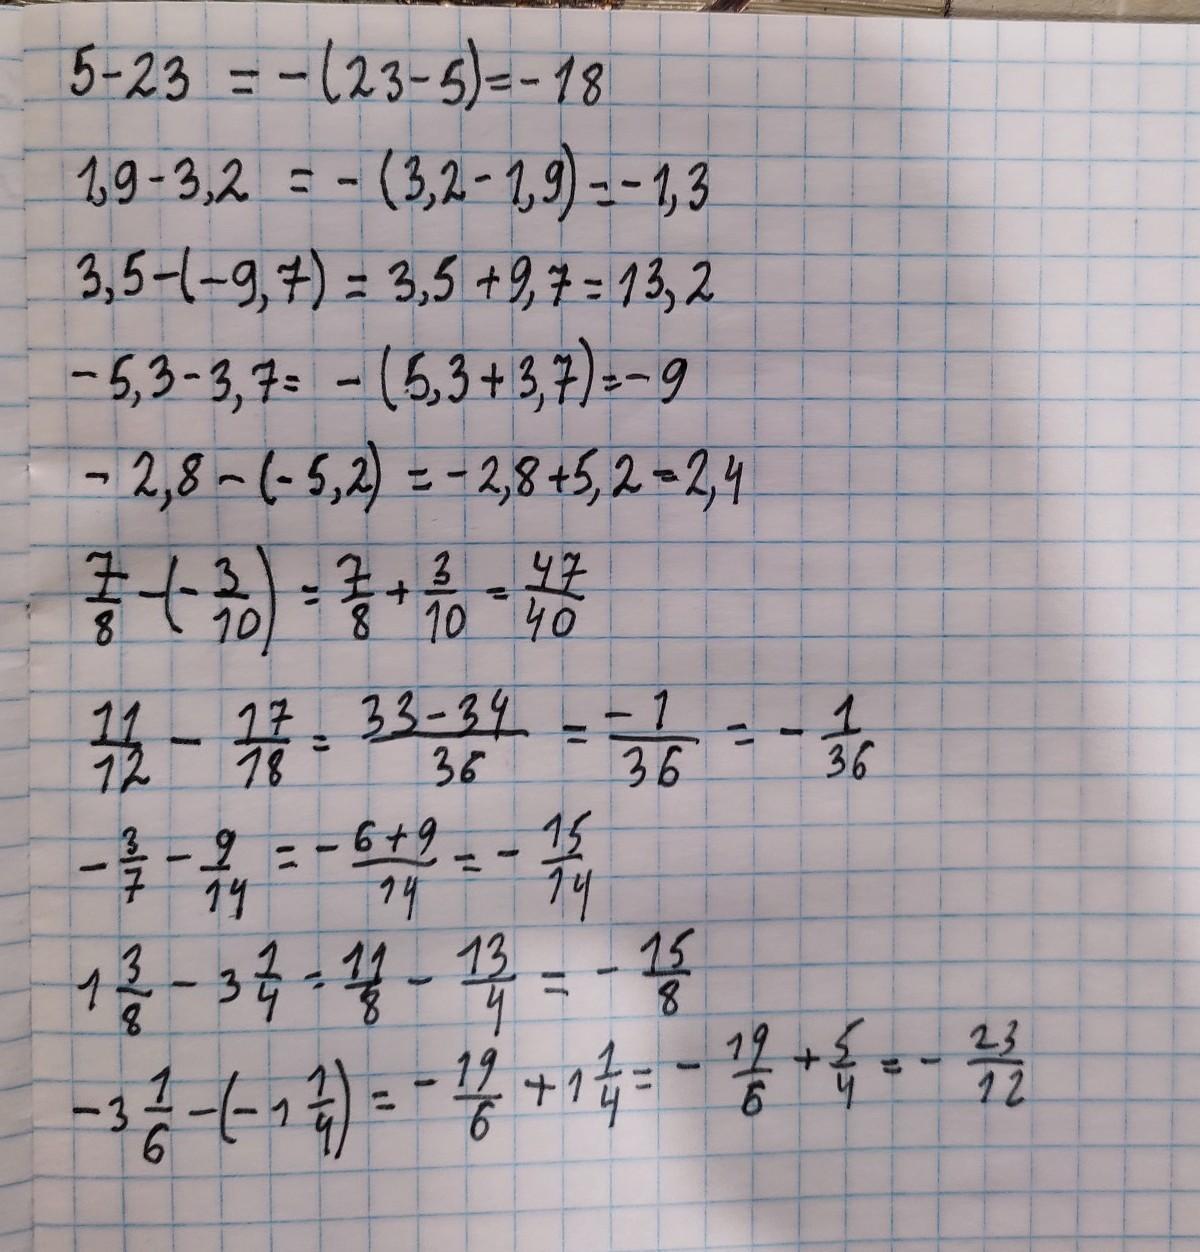 5-23 = -(23-5)=-18
1,9-3,2 = -(3,2-1,9)=-1,3
3,5-(-9,7) = 3,5+9,7=13,2
-5,3-3,7= -(5,3+3,7)=-9
-2,8-(-5,2) = -2,8+5,2=2,4
7/8 -(-3/10) = 7/8 + 3/10 = 47/40
11/12 - 17/18 = (33-34)/36 = -1/36 = -1/36
-3/7 - 9/14 = -(6+9)/14 = -15/14
1 3/8 - 3 1/4 = 11/8 - 13/4 = -15/8
-3 1/6 -(-1 1/4) = -19/6 + 1 1/4 = -19/6 + 5/4 = -23/12